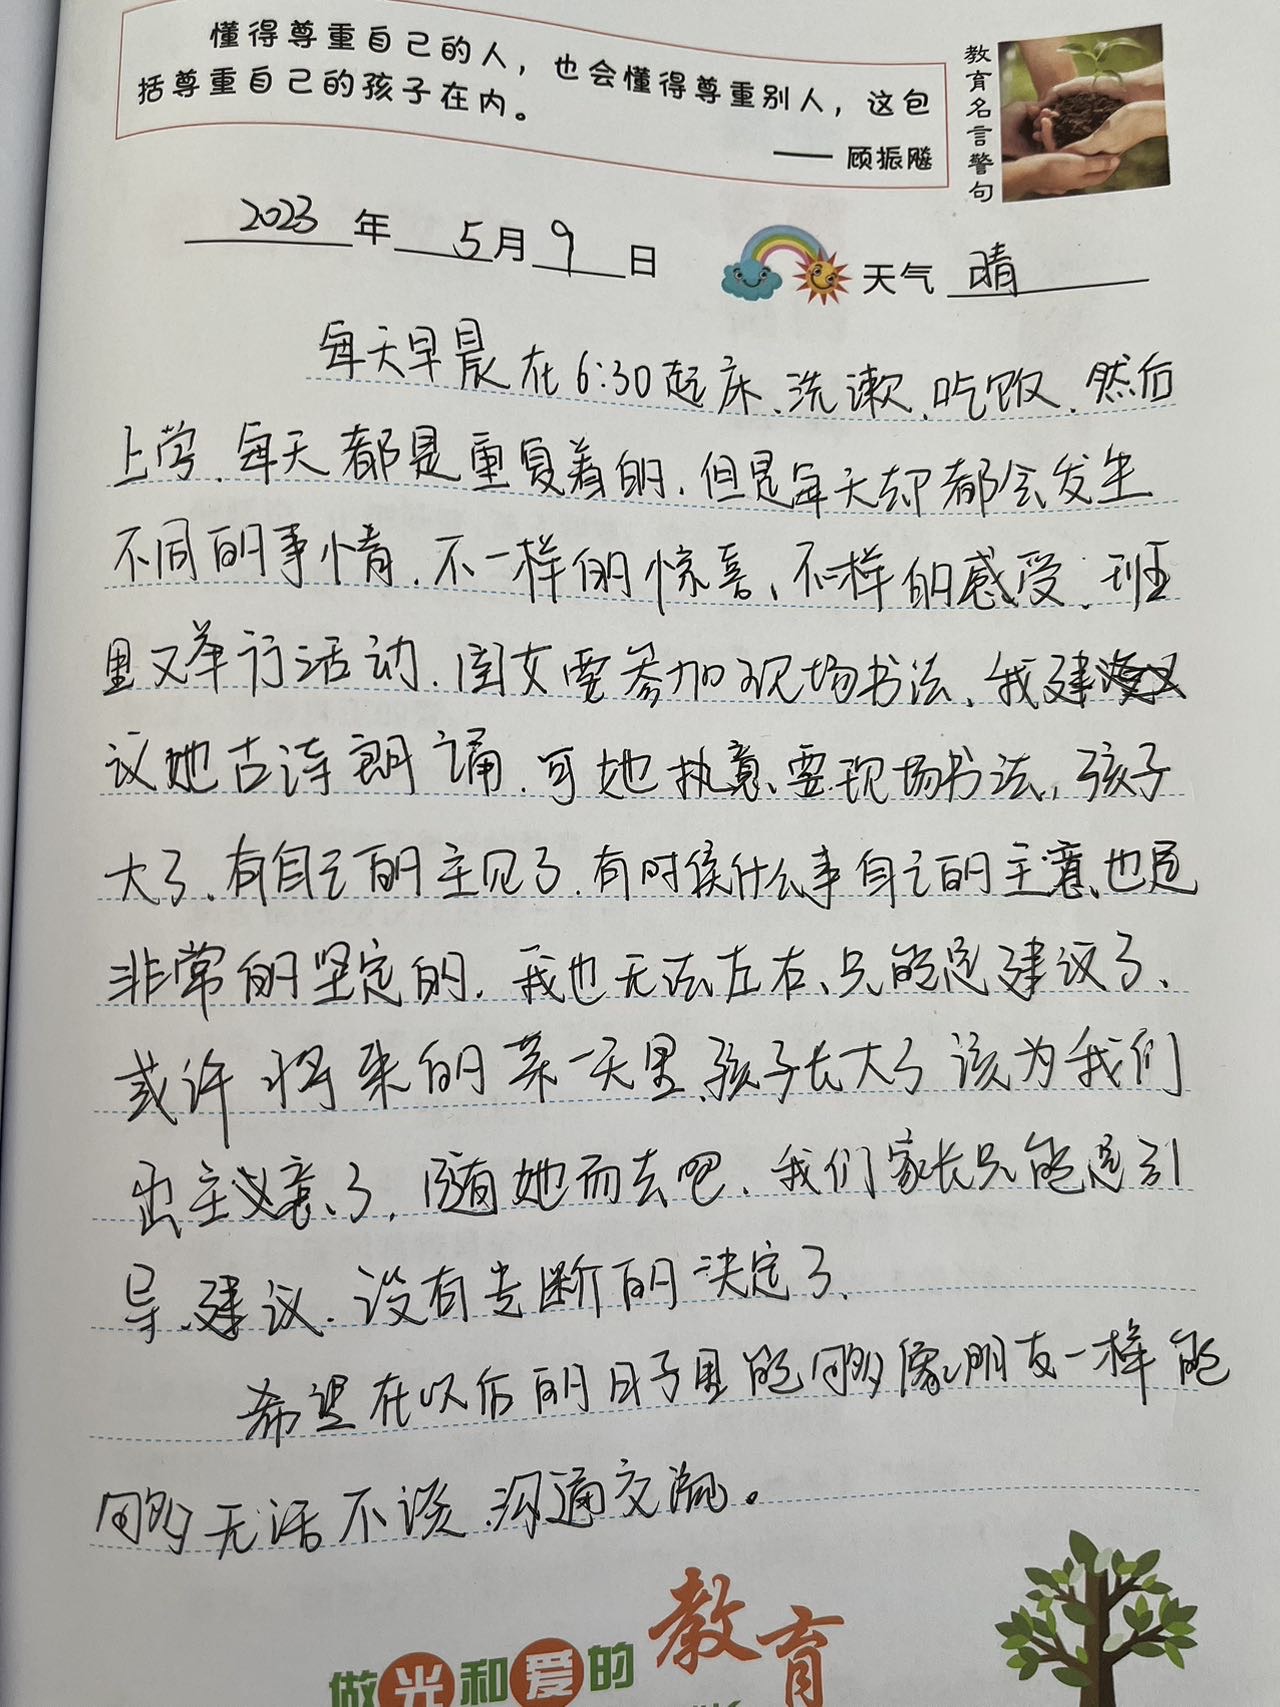 懂得尊重自己的人，也会懂得尊重别人，这包
括尊重自己的孩子在内。
—— 顾振飚
教育名言警句
2023年5月9日 天气 晴
每天早晨在6:30起床、洗漱、吃饭、然后
上学、每天都是重复着的，但是每天却都会发生
不同的事情，不一样的惊喜、不一样的感受、班
里又举行活动、闺女要参加现场书法、我建
议她古诗朗诵，可她执意要现场书法，孩子
大了、有自己的主见了，有时候什么事自己的主意也是
非常的坚定的，我也无法左右、只能是建议了、
或许将来的某一天里孩子长大了该为我们
出主意了，随她而去吧、我们家长只能是引
导、建议，没有专断的决定了、
希望在以后的日子里能够像朋友一样能
够无话不谈、沟通交流。
做光和爱的教育